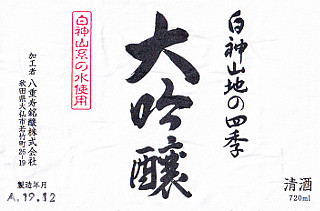 白神山地の四季
大吟醸
白神山系の水使用
加工者 八重寿銘醸株式会社
秋田県大仙市若竹町26-19
製造年月
A.19.12
清酒
720ml